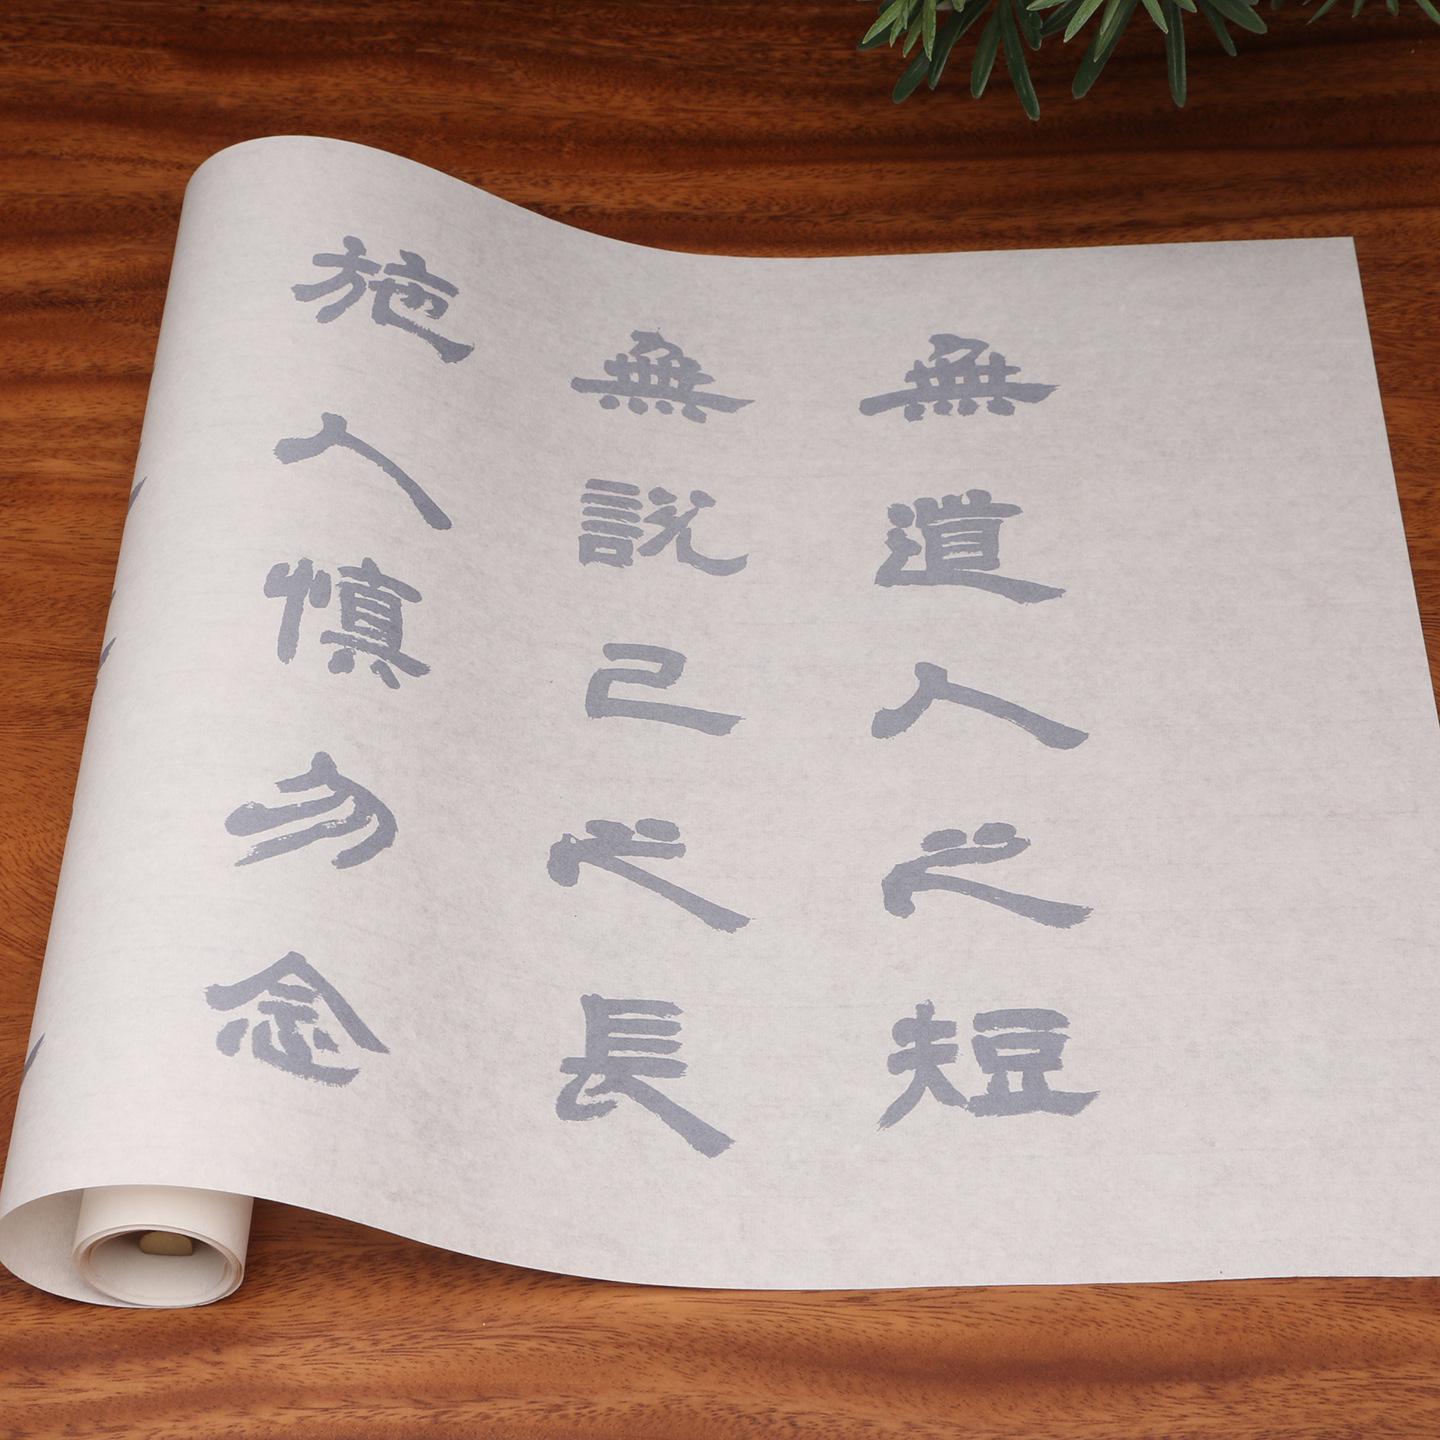 無道人之短
無說己之長
施人慎勿念